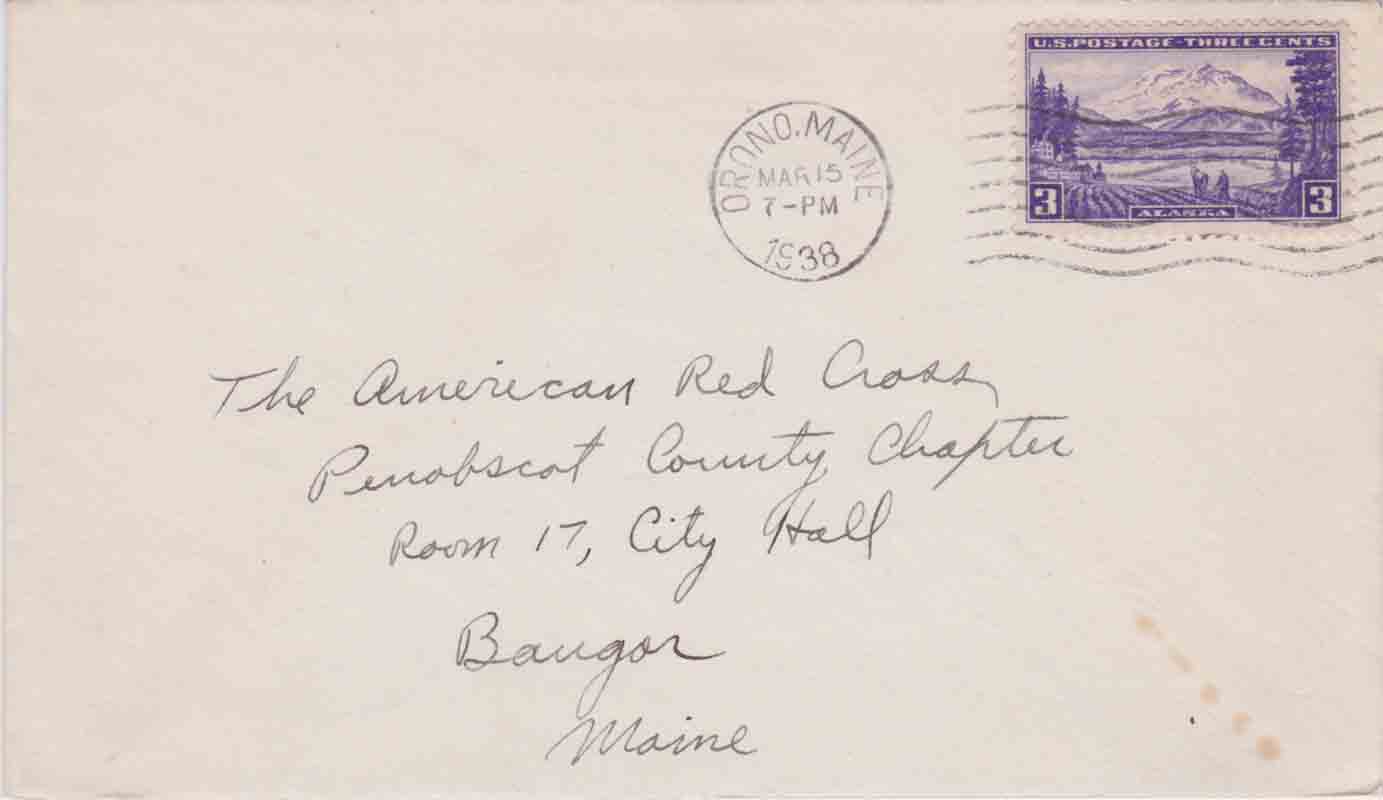 U.S. POSTAGE - THREE CENTS
3
ALASKA
3
ORONO, MAINE
MAR 15
7-PM
1938
The American Red Cross,
Penobscot County Chapter
Room 17, City Hall
Bangor
Maine